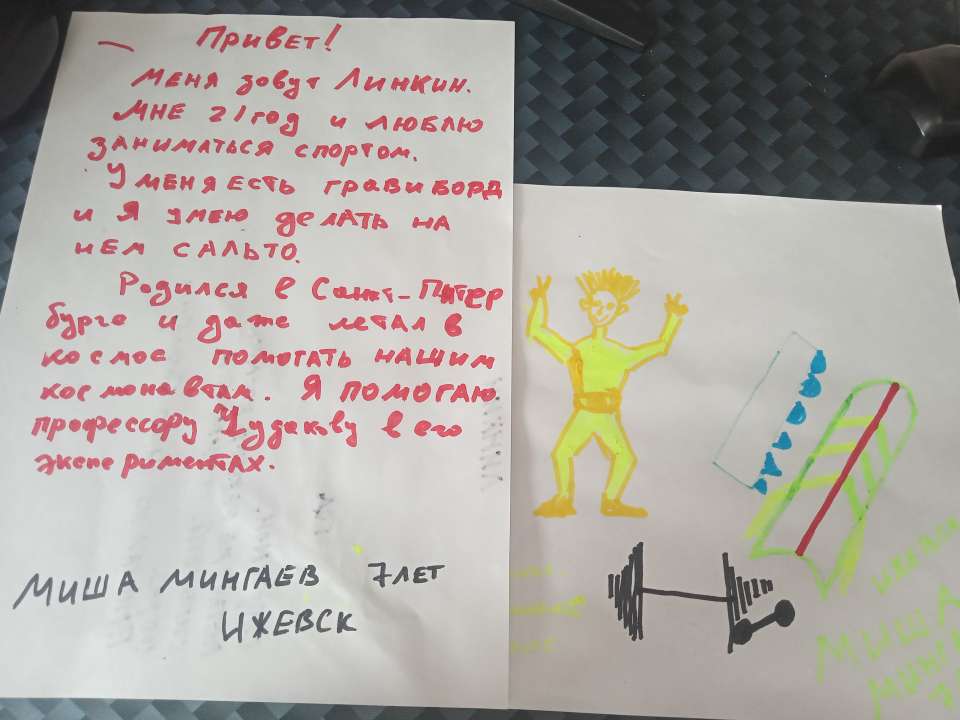 Привет!
Меня зовут Линкин.
Мне 21 год и люблю
заниматься спортом.
У меня есть гравиборд
и я умею делать на
нем сальто.
Родился в Санкт-Питер
бурге и даже летал в
космос помогать нашим
космонавтам. Я помогаю
профессору Чудакову в его
экспериментах.
МИША МИНГАЕВ 7 ЛЕТ
ИЖЕВСК
МИША